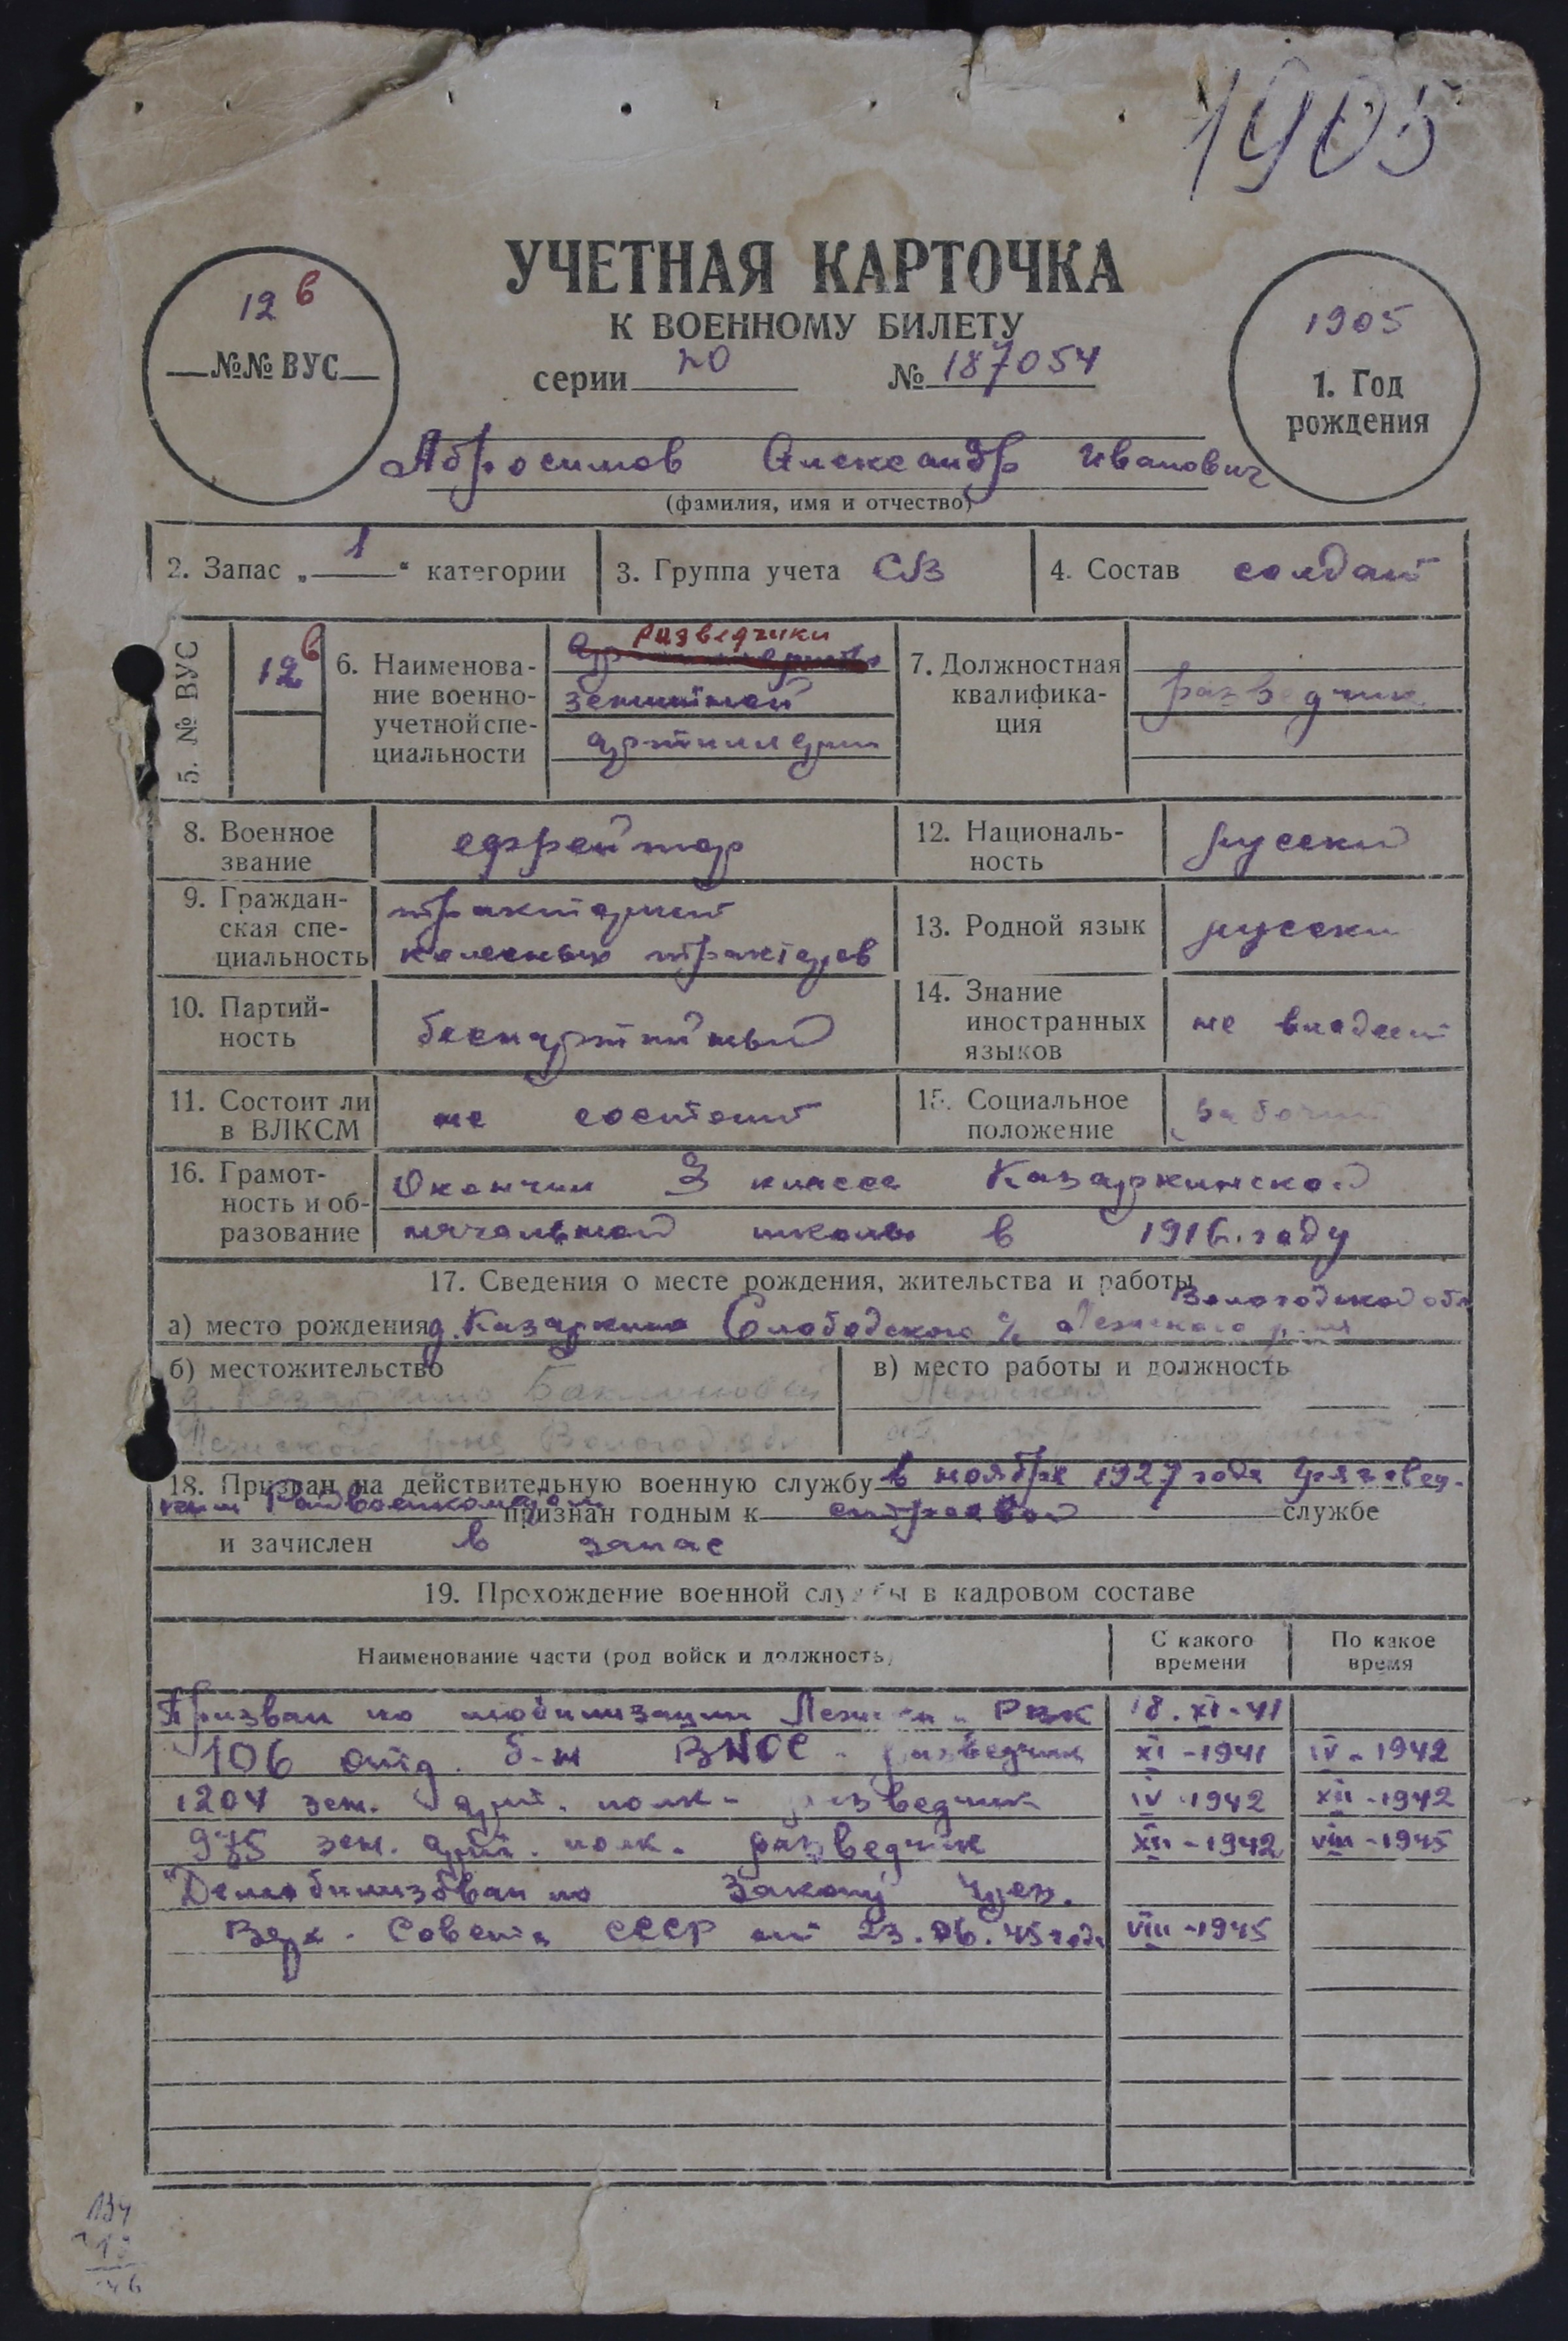 1905
УЧЕТНАЯ КАРТОЧКА
К ВОЕННОМУ БИЛЕТУ
12 в
№№ ВУС
серии № 187054
1905
1. Год
рождения
Абросимов Александр Иванович
(фамилия, имя и отчество)
2. Запас „ 1 “ категории
3. Группа учета СВ
4. Состав солдат
5. № ВУС
12 в
6. Наименова-
ние военно-
учетной спе-
циальности
разведчики
зенитной
артиллерии
7. Должностная
квалифика-
ция
разведчик
8. Военное
звание
ефрейтор
12. Националь-
ность
русский
9. Граждан-
ская спе-
циальность
тракторист
колесных тракторов
13. Родной язык
русский
10. Партий-
ность
беспартийный
14. Знание
иностранных
языков
не владеет
11. Состоит ли
в ВЛКСМ
не состоит
15. Социальное
положение
рабочий
16. Грамот-
ность и об-
разование
Окончил 3 класса Казаркинской
начальной школы в 1916. году
17. Сведения о месте рождения, жительства и работы
Вологодской обл
а) место рождения д. Казаркино Слободского с/с Лежского р-на
б) местожительство
д. Казаркино
Лежского р-на Вологод. обл
в) место работы и должность
18. Призван на действительную военную службу в ноябре 1927 года Грязовец-
ким Райвоенкоматом признан годным к строевой службе
и зачислен в запас
19. Прохождение военной службы в кадровом составе
Наименование части (род войск и должность)
С какого
времени
По какое
время
Призван по мобилизации Лежским РВК 18. XI-41
106 отд. б-н ВНОС - разведчик XI-1941 IV-1942
1204 зен. арт. полк - разведчик IV-1942 XII-1942
975 зен. арт. полк. разведчик XII-1942 VIII-1945
Демобилизован по Закону През.
Верх. Совета СССР от 23.06.45 года VIII-1945
134